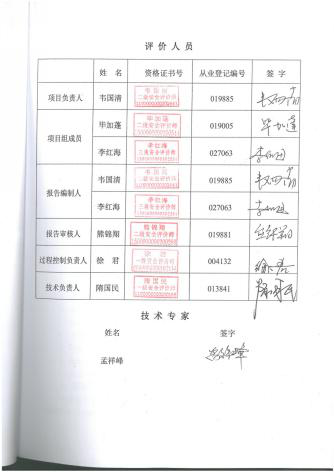 评价人员
姓名 资格证书号 从业登记编号 签字
项目负责人 韦国清 韦国清 二级安全评价师 019885
项目组成员 毕加蓬 毕加蓬 二级安全评价师 019005 毕加蓬
李红海 李红海 三级安全评价师 027063 李红海
报告编制人 韦国清 二级安全评价师 019885
李红海 李红海 三级安全评价师 027063
报告审核人 熊锦翔 熊锦翔 二级安全评价师 019881
过程控制负责人 徐君 徐君 一级安全评价师 004132 徐君
技术负责人 隋国民 隋国民 一级安全评价师 013841
技术专家
姓名 签字
孟祥峰